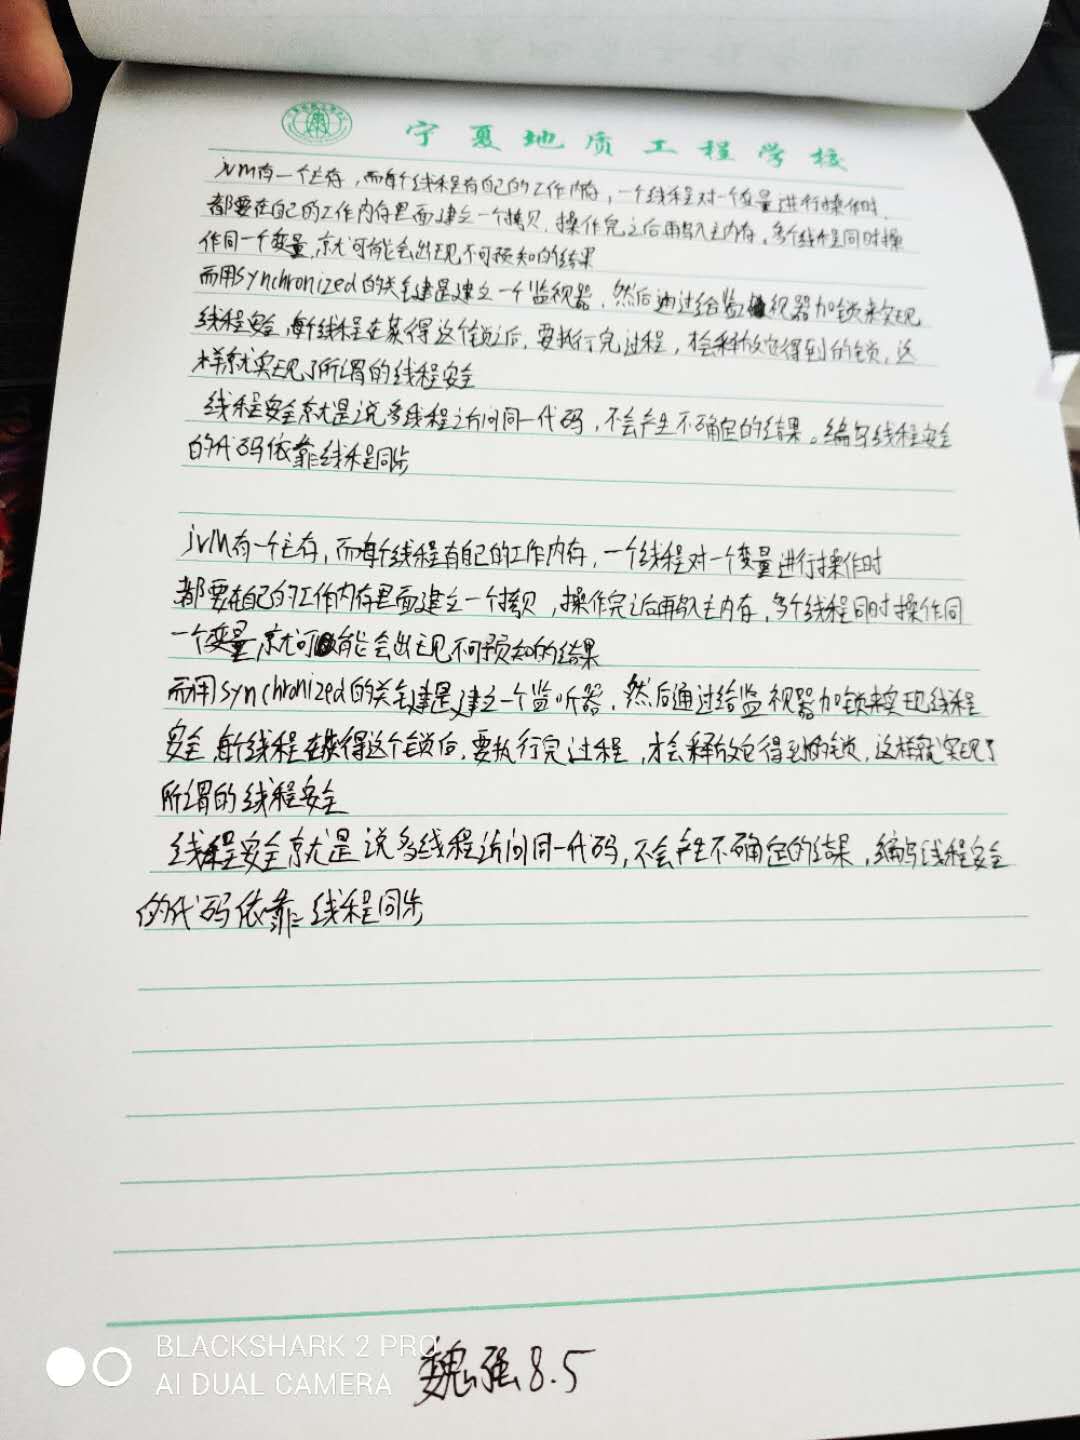 宁夏地质工程学校
jvm有一个主存，而每个线程有自己的工作内存，一个线程对一个变量进行操作时，
都要在自己的工作内存里面建立一个拷贝，操作完之后再写入主内存，多个线程同时操
作同一个变量，就可能会出现不可预知的结果
而用synchronized的关键是建立一个监视器，然后通过给监视器加锁来实现
线程安全，每个线程在获得这个锁之后，要执行完过程，才会释放它得到的锁，这
样就实现了所谓的线程安全
线程安全就是说多线程访问同一代码，不会产生不确定的结果。编写线程安全
的代码依靠线程同步
jvm有一个主存，而每个线程有自己的工作内存，一个线程对一个变量进行操作时
都要在自己的工作内存里面建立一个拷贝，操作完之后再写入主内存，多个线程同时操作同
一个变量，就可能会出现不可预知的结果
而用synchronized的关键是建立一个监听器，然后通过给监视器加锁来实现线程
安全，每个线程在获得这个锁后，要执行完过程，才会释放它得到的锁，这样就实现了
所谓的线程安全
线程安全就是说多线程访问同一代码，不会产生不确定的结果，编写线程安全
的代码依靠线程同步
BLACKSHARK 2 PRO
AI DUAL CAMERA
魏强8.5